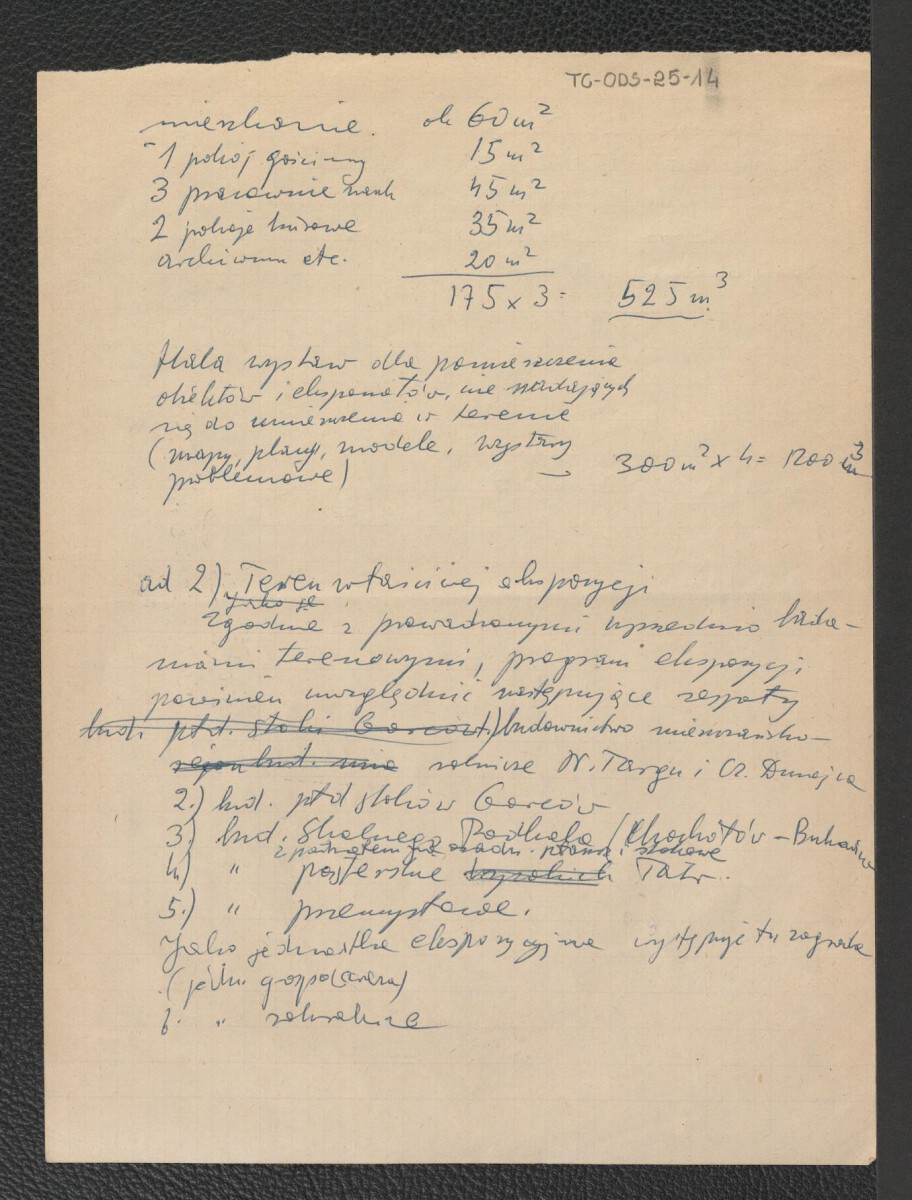 TG-ODS-25-14
mieszkanie. ok 60 m²
1 pokój gościnny 15 m²
3 pracownie nauk 45 m²
2 pokoje biurowe 35 m²
archiwum etc. 20 m²
175 x 3 = 525 m³
Hala wystaw dla pomieszczenia
obiektów i eksponatów, nie nadających
się do umieszczenia w terenie
(mapy, plany, modele, wystawy
problemowe) — 300 m² x 4 = 1200 m³
ad 2) Teren właściwej ekspozycji
Zgodnie z prowadzonymi uprzednio bada-
niami terenowymi, program ekspozycji
powinien uwzględnić następujące zespoły
bud. płd. stoki Gorców 1.) budownictwo mieszczańsko-
rejon bud. rolnicze N. Targu i Cz. Dunajca
2.) bud. płd stoków Gorców
3) bud. Skalnego Podhala (Chochołów - Bukowina
z podziałem na osadn. i stokowe
4) " pasterskie wysokich Tatr.
5.) " przemysłowe.
Jako jednostka ekspozycyjna występuje tu zagroda
(jedn. gospodarcza)
6. " sakralne